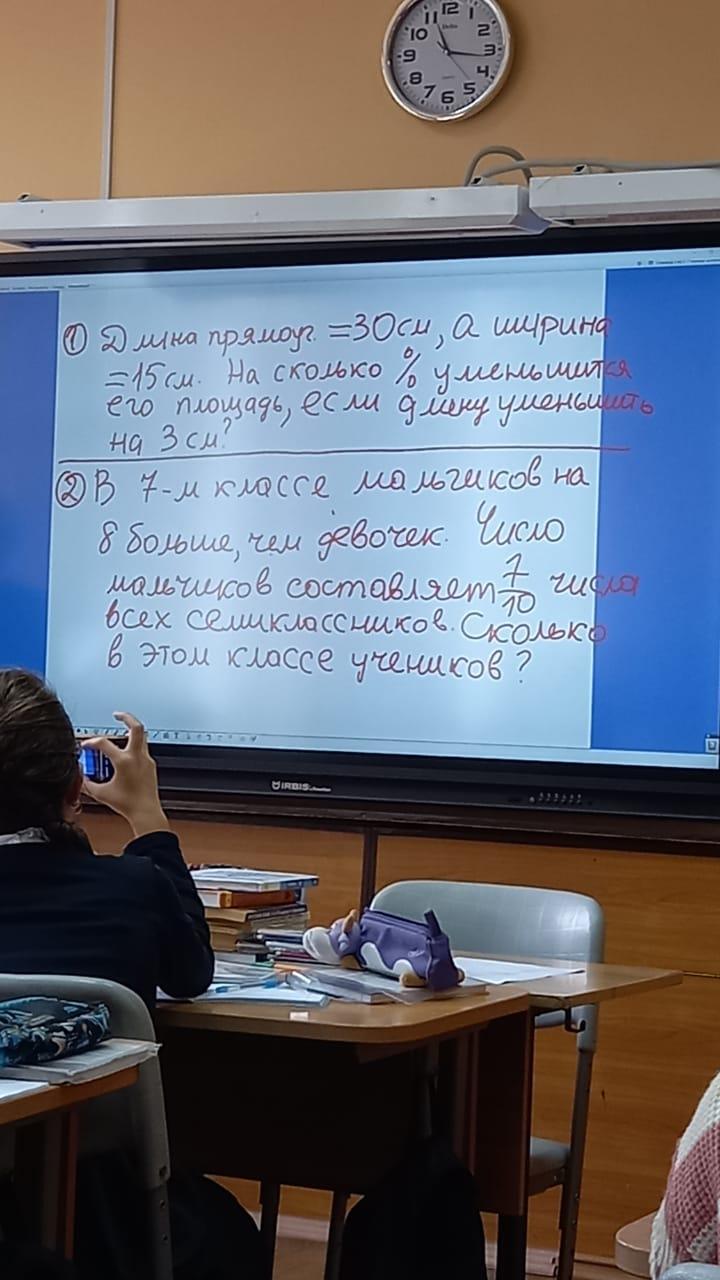 12
11 1
10 2
9 3
8 4
7 5
6
① Длина прямоуг. =30см, а ширина
=15см. На сколько % уменьшится
его площадь, если длину уменьшить
на 3 см?
② В 7-м классе мальчиков на
8 больше, чем девочек. Число
мальчиков составляет 7/10 числа
всех семиклассников. Сколько
в этом классе учеников?
IRBIS